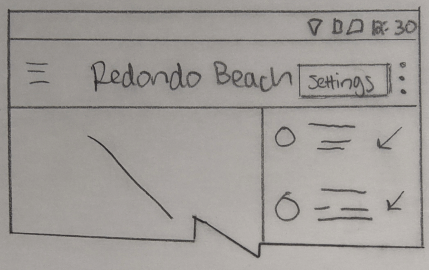 12:30
Redondo Beach Settings